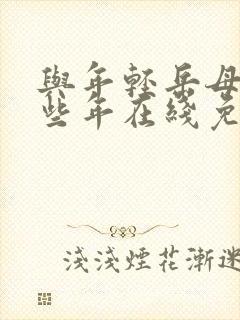 與年輕岳母
些年在綫免
淺淺煙花漸迷